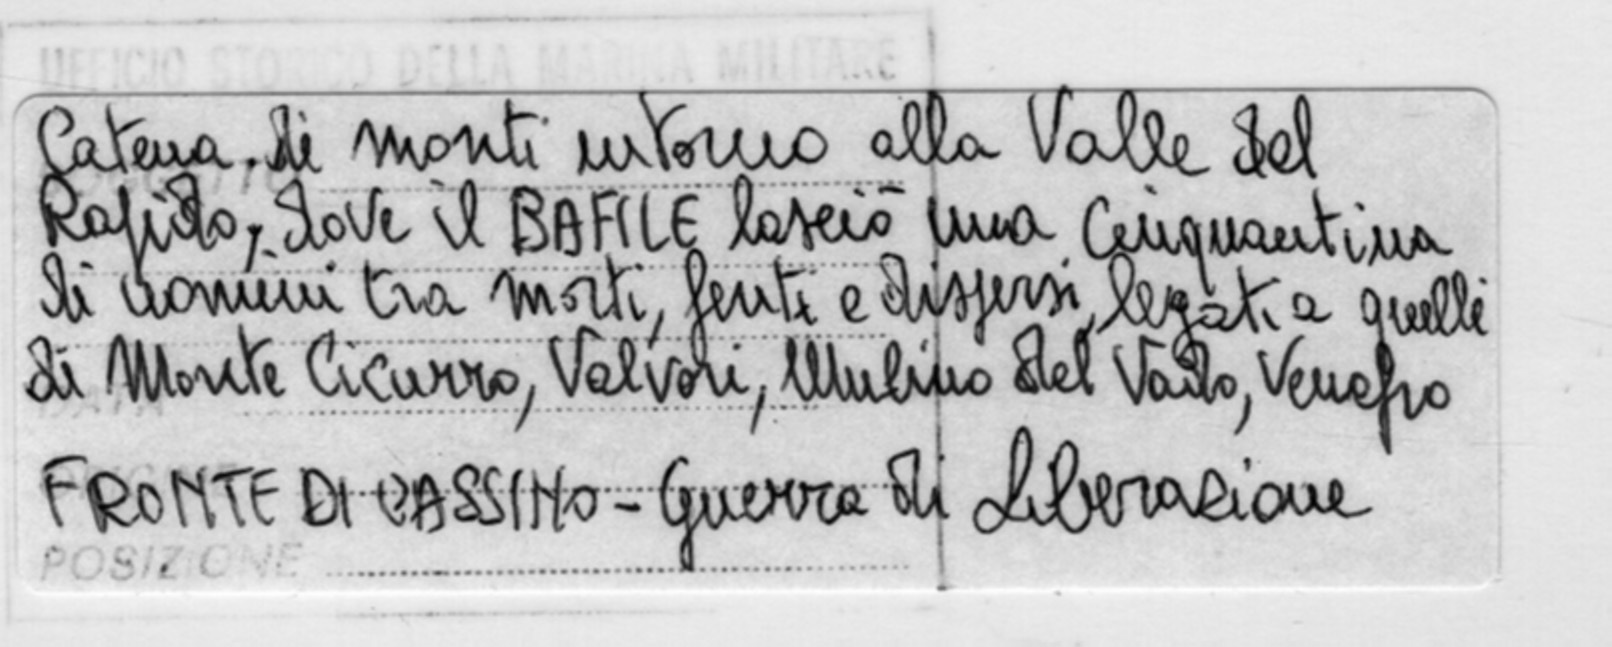 UFFICIO STORICO DELLA MARINA MILITARE
Catena di monti intorno alla Valle del
Rapido, dove il BAFILE lasciò una Cinquantina
di uomini tra morti, feriti e dispersi, legati a quelli
di Monte Cicurro, Valvori, Mulino del Vado, Venafro
FRONTE DI CASSINO - Guerra di Liberazione
POSIZIONE